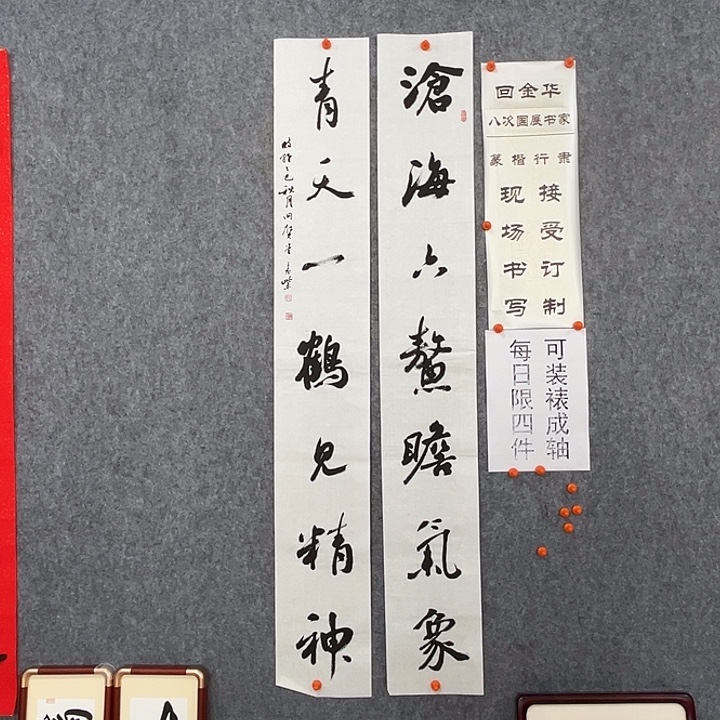 滄海六鰲瞻氣象
青天一鶴見精神
回金华
八次国展书家
篆楷行隶
接受订制
现场书写
可装裱成轴
每日限四件